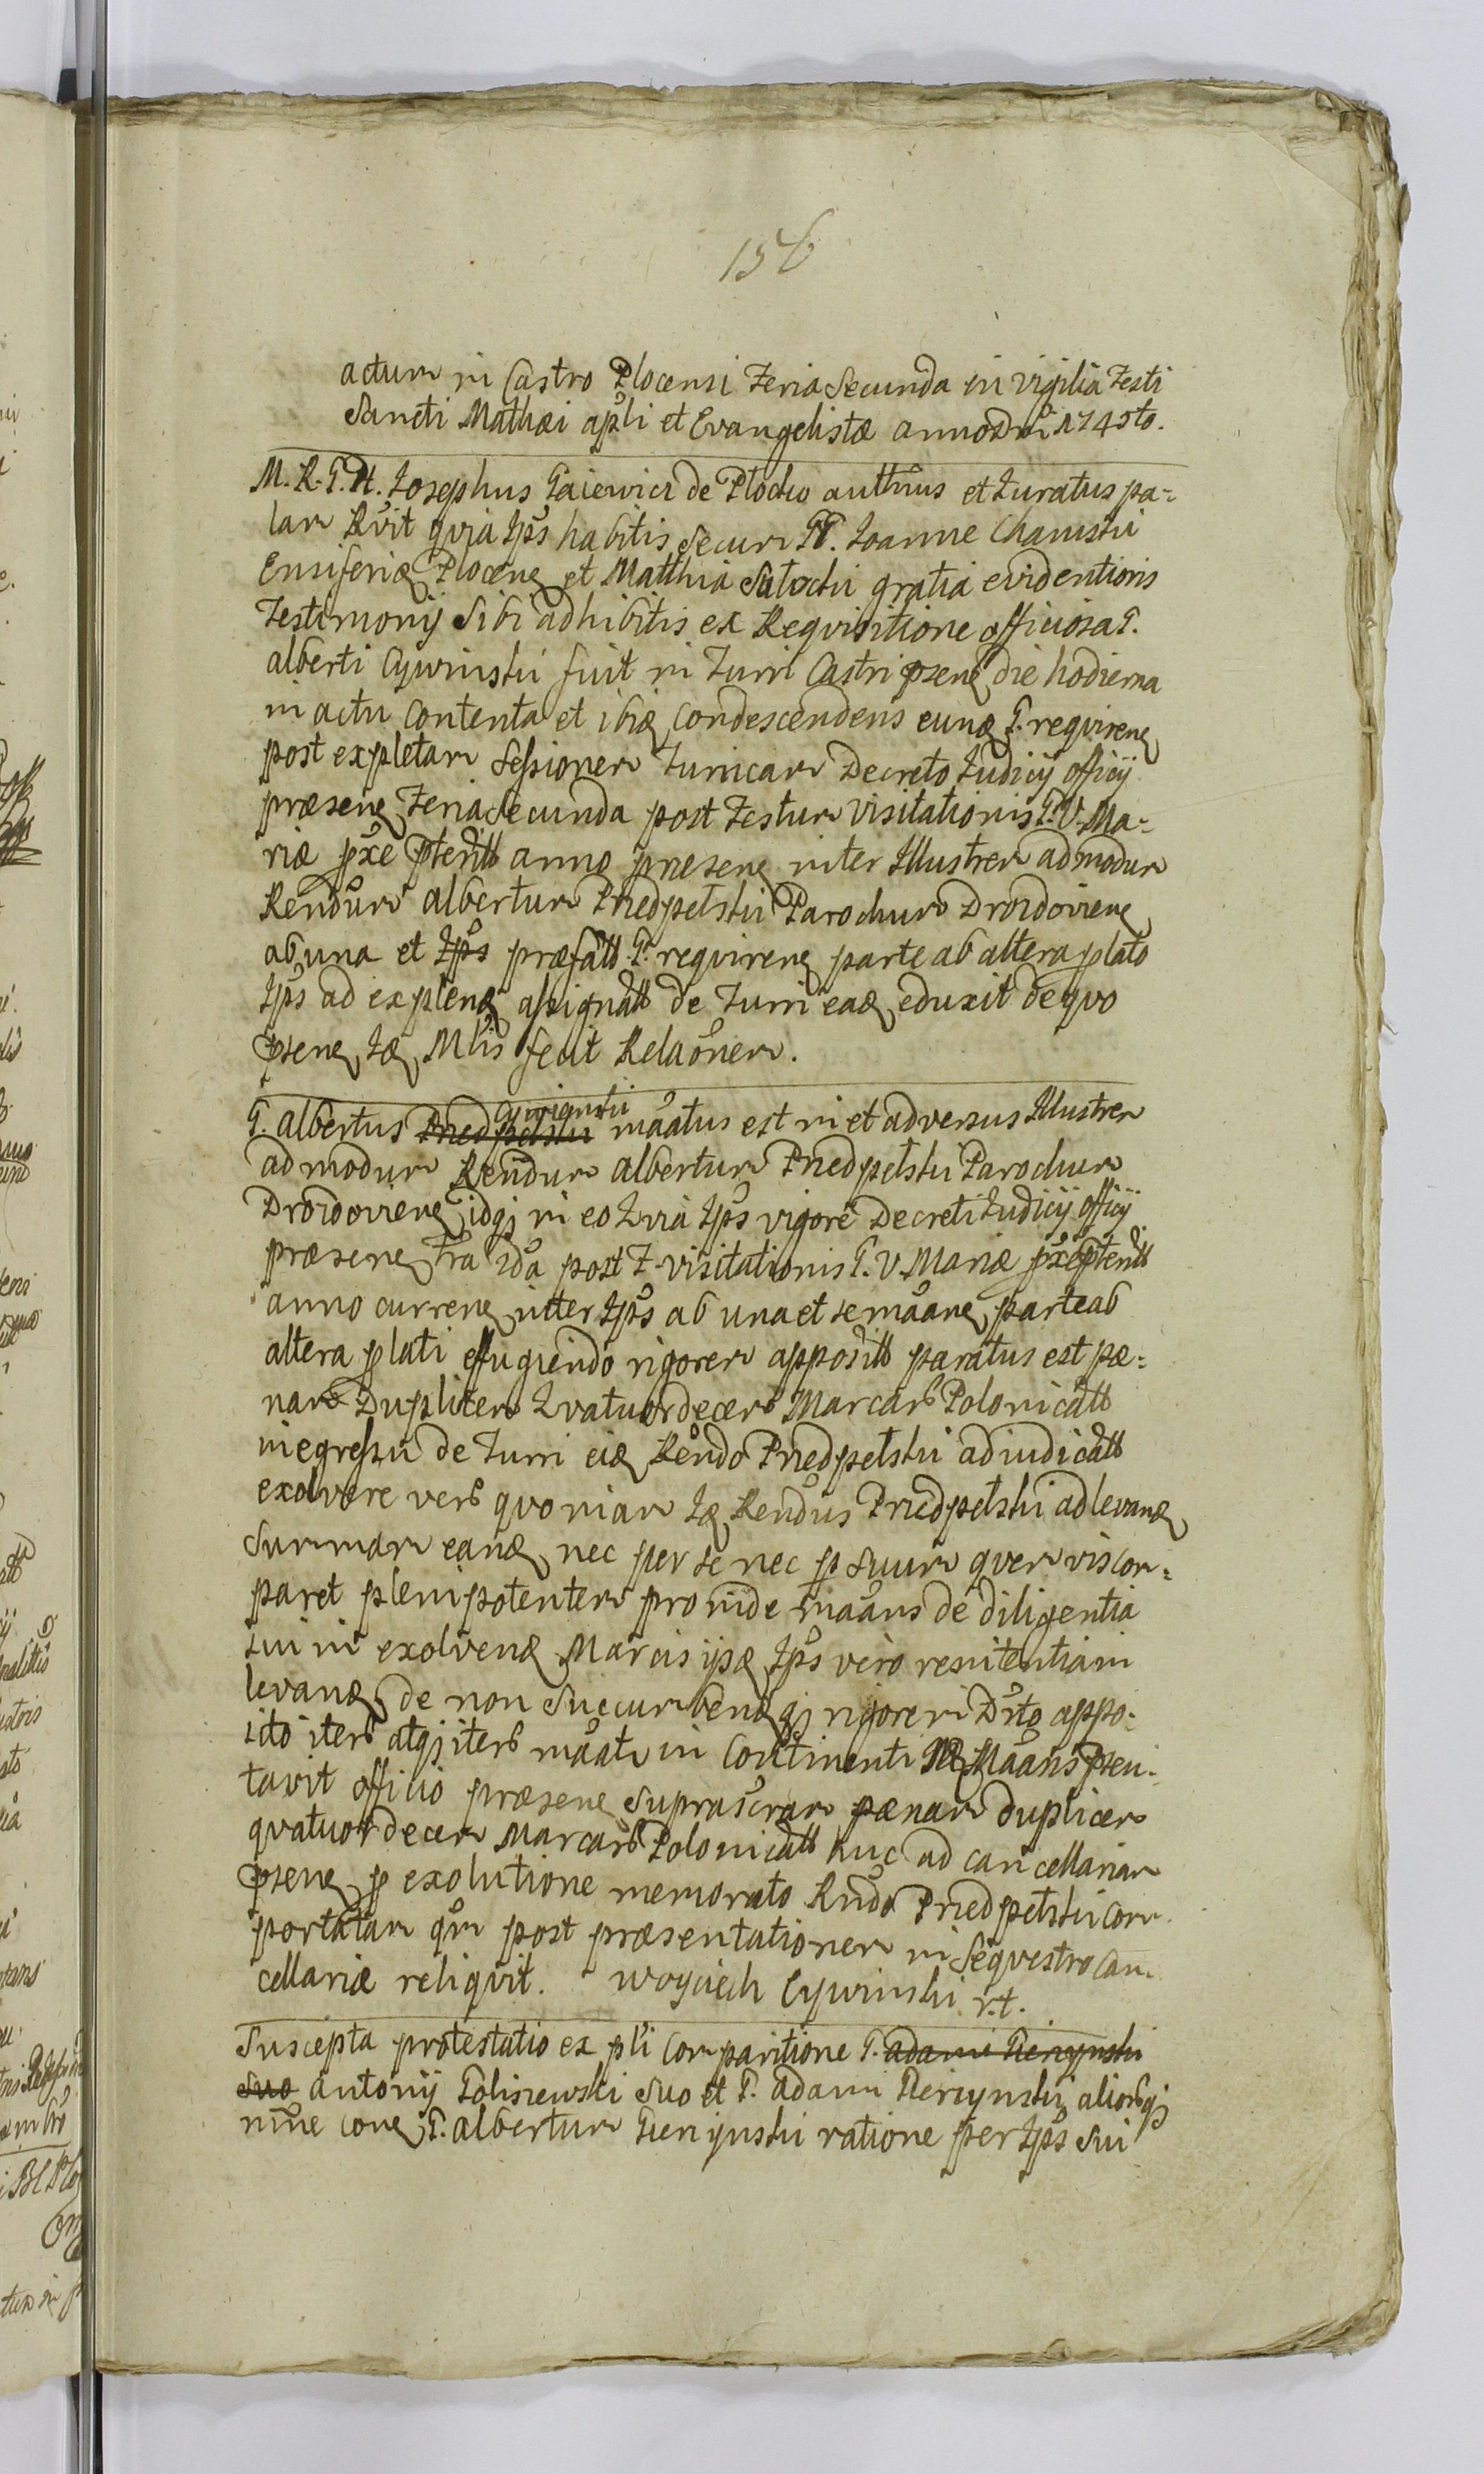 156
actum in Castro Plocensi Feria Secunda in vigilia Festi
Sancti Mathæi apli et Evangelistæ anno Dni 1745to.
M. R. G. H. Josephus Gaiewicz de Plocko authus et Juratus pa-
lam Rvit qvia Ips habitis secum GG. Joanne Chamski
Ensiferiæ Plocen et Matthia Sutocki gratia evidentioris
Testimonij sibi adhibitis ex Reqvisitione officiosa G.
alberti Cywinski fuit in Turri Castri psen die hodierna
in actu contenta et ibiq condescendens eunq G. reqviren
post expletam Sessionem Turricam Decreto Judicij officij
præsen Feria Secunda post Festum visitationis B. V. Ma-
riæ pxe pterit anno præsen inter Illustrem admodum
Rendum albertum Predpelski Parochum Drozdovien
ab una et Ips præfatt G. reqviren parte ab altera plato
Ips ad explend assignatt de Turri ead eduxit de qvo
psen Id Mlis fecit Relaonem.
G. albertus Predpelski Cywinski maatus est in et adversus Illustrem
admodum Rendum albertum Predpelski Parochum
Drozdovien idqj in eo Qvia Ips vigore Decreti Judicij officij
præsen fra 2da post F. visitationis B. V. Mariæ pxe pterit
anno curren inter Ips ab una et se maan parte ab
altera plati effugiendo rigorem apposit paratus est pæ-
nam Duplicem Qvatuordecem Marcar Polonicatt
in egressu de Turri eid Rendo Predpelski adiudicatt
exolvere verb qvoniam Id Rendus Predpelski ad levand
Summam eand nec per se nec p suum qvemvis com-
paret plenipotentem proinde maans de diligentia
sui in exolvend Marcis ipse Ips vero renitentiam
levand de non succumbend qj rigorem Drto appo-
sito iterb atqj iterb maatr in continenti Id Maans psen-
tavit officio præsen suprascram pænam duplicem
qvatuordecem Marcar Polonicatt huc ad cancellariam
psen p exolutione memorato Rndo Predpelski com-
portatam qm post præsentationem in Seqvestro Can-
cellariæ reliqvit. Woyciech Cywinski r.t.
Suscepta protestatio ex pli Comparitione G. adami Pierzynski
suo antonij Goliszewski suo et G. adami Pierzynski aliorqj
nme con G. albertum Pierzynski ratione per Ips sui